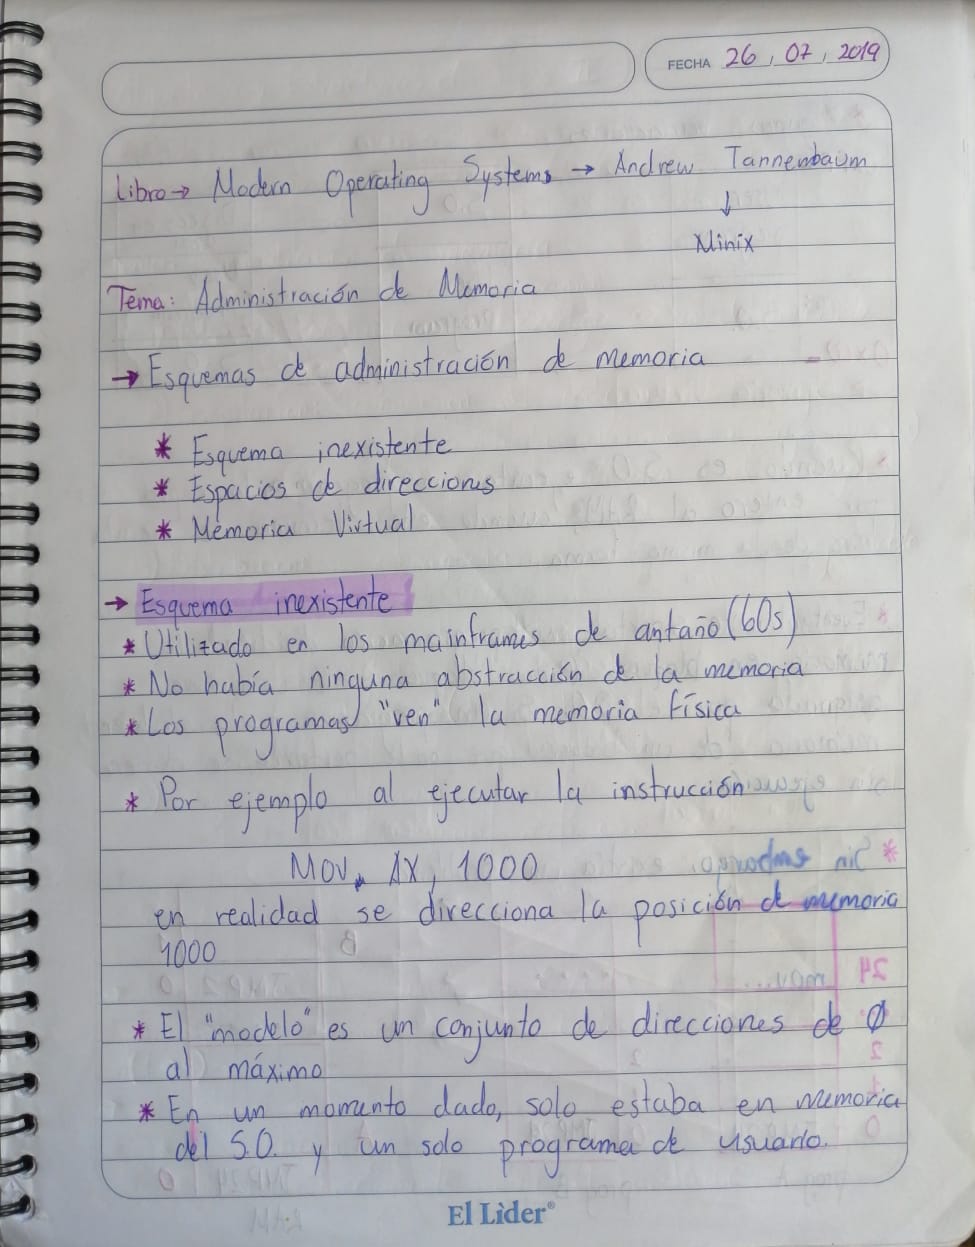 FECHA 26, 07, 2019
Libro → Modern Operating Systems → Andrew Tannenbaum
↓
Minix
Tema: Administración de Memoria
→ Esquemas de administración de memoria
* Esquema inexistente
* Espacios de direcciones
* Memoria Virtual
→ Esquema inexistente
* Utilizado en los mainframes de antaño (60s)
* No había ninguna abstracción de la memoria
* Los programas "ven" la memoria física
* Por ejemplo al ejecutar la instrucción
MOV AX, 1000
en realidad se direcciona la posición de memoria
1000
* El "modelo" es un conjunto de direcciones de 0
al máximo
* En un momento dado, solo estaba en memoria
del S.O. y un solo programa de usuario.
El Lìder®